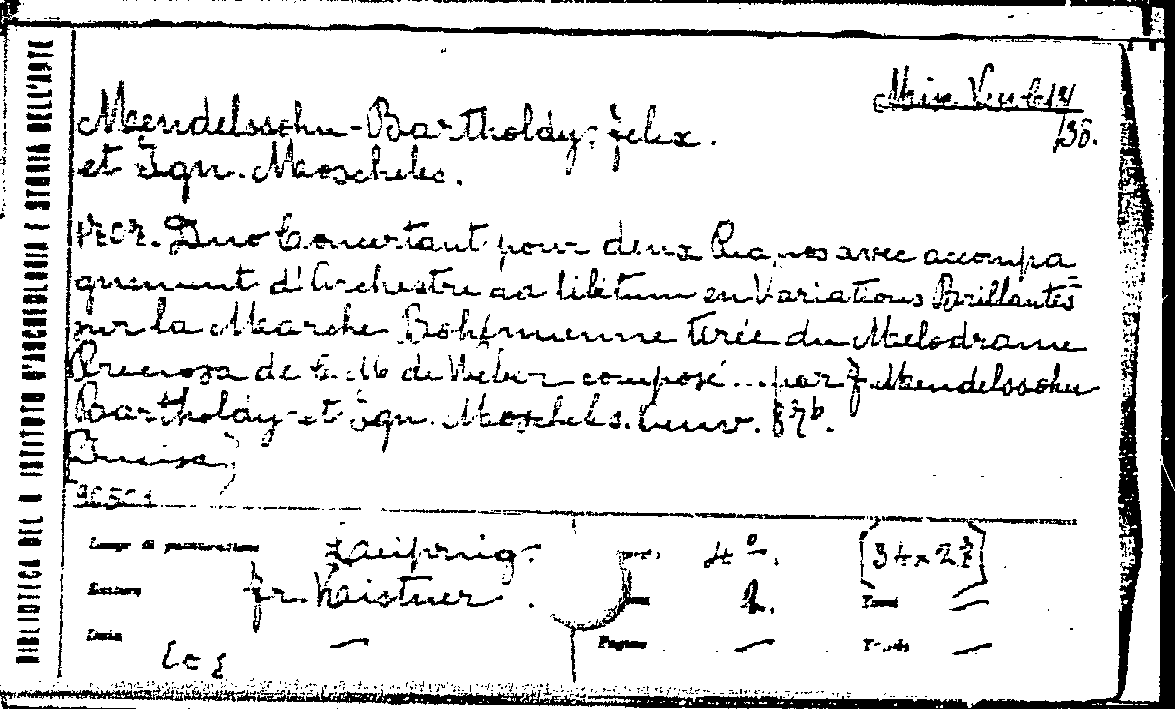 BIBLIOTECA DEL R ISTITUTO D'ARCHEOLOGIA E STORIA DELL'ARTE
/36.
Mendelssohn-Bartholdy, Felix.
et Ign. Moscheles.
Duo Concertant pour deux Pianos avec accompa
gnement d'Orchestre ad libitum en Variations Brillantes
sur la Marche Bohémienne tirée du Melodrame
Preciosa de C. M. de Weber composé...par F Mendelssohn
Bartholdy et Ign. Moscheles. Oeuv. 87b.
Luogo di pubblicazione Leipzig. 4º. [34x27]
Editore Fr. Kistner. 2. Tomi —
Data — Pagine — Tavole —